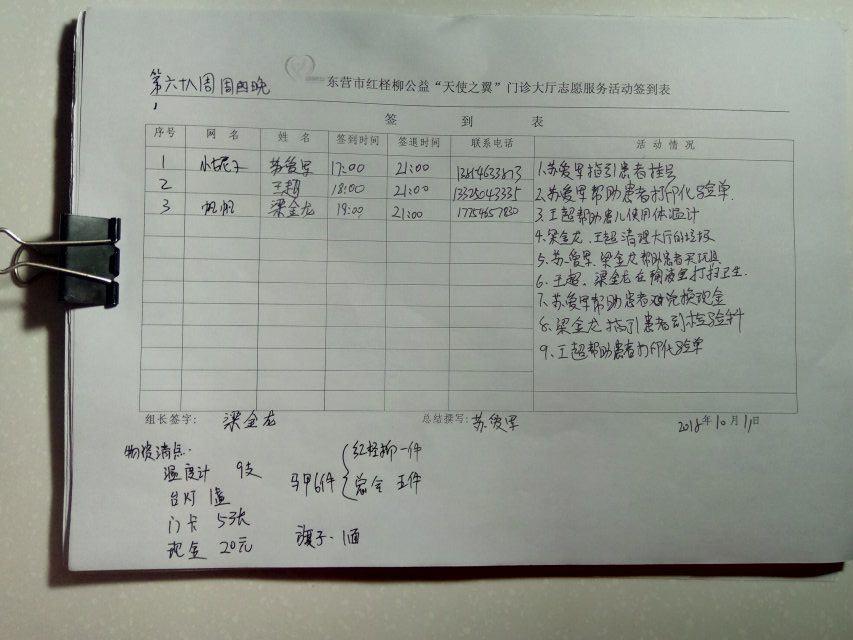 第六十八周周四晚
东营市红柽柳公益“天使之翼”门诊大厅志愿服务活动签到表
签 到 表
序号 网 名 姓 名 签到时间 签退时间 联系电话 活 动 情 况
1 苏爱军 17:00 21:00
2 王超 18:00 21:00 13325043335
3 帆帆 梁金龙 19:00 21:00 17754657830
1.苏爱军指引患者挂号
2.苏爱军帮助患者打印化验单.
3.王超帮助患儿使用体温计
4.梁金龙、王超清理大厅的垃圾
5.苏爱军、梁金龙帮助患者买玩具
6.王超、梁金龙在输液室打扫卫生.
7.苏爱军帮助患者兑换现金
8.梁金龙指引患者到检验科
9.王超帮助患者打印化验单
组长签字: 梁金龙 总结撰写: 苏爱军 2018年10月11日
物资清点.
温度计 9支
台灯 1盏
门卡 53张
现金 20元
马甲6件
红柽柳一件
五件
旗子.1面